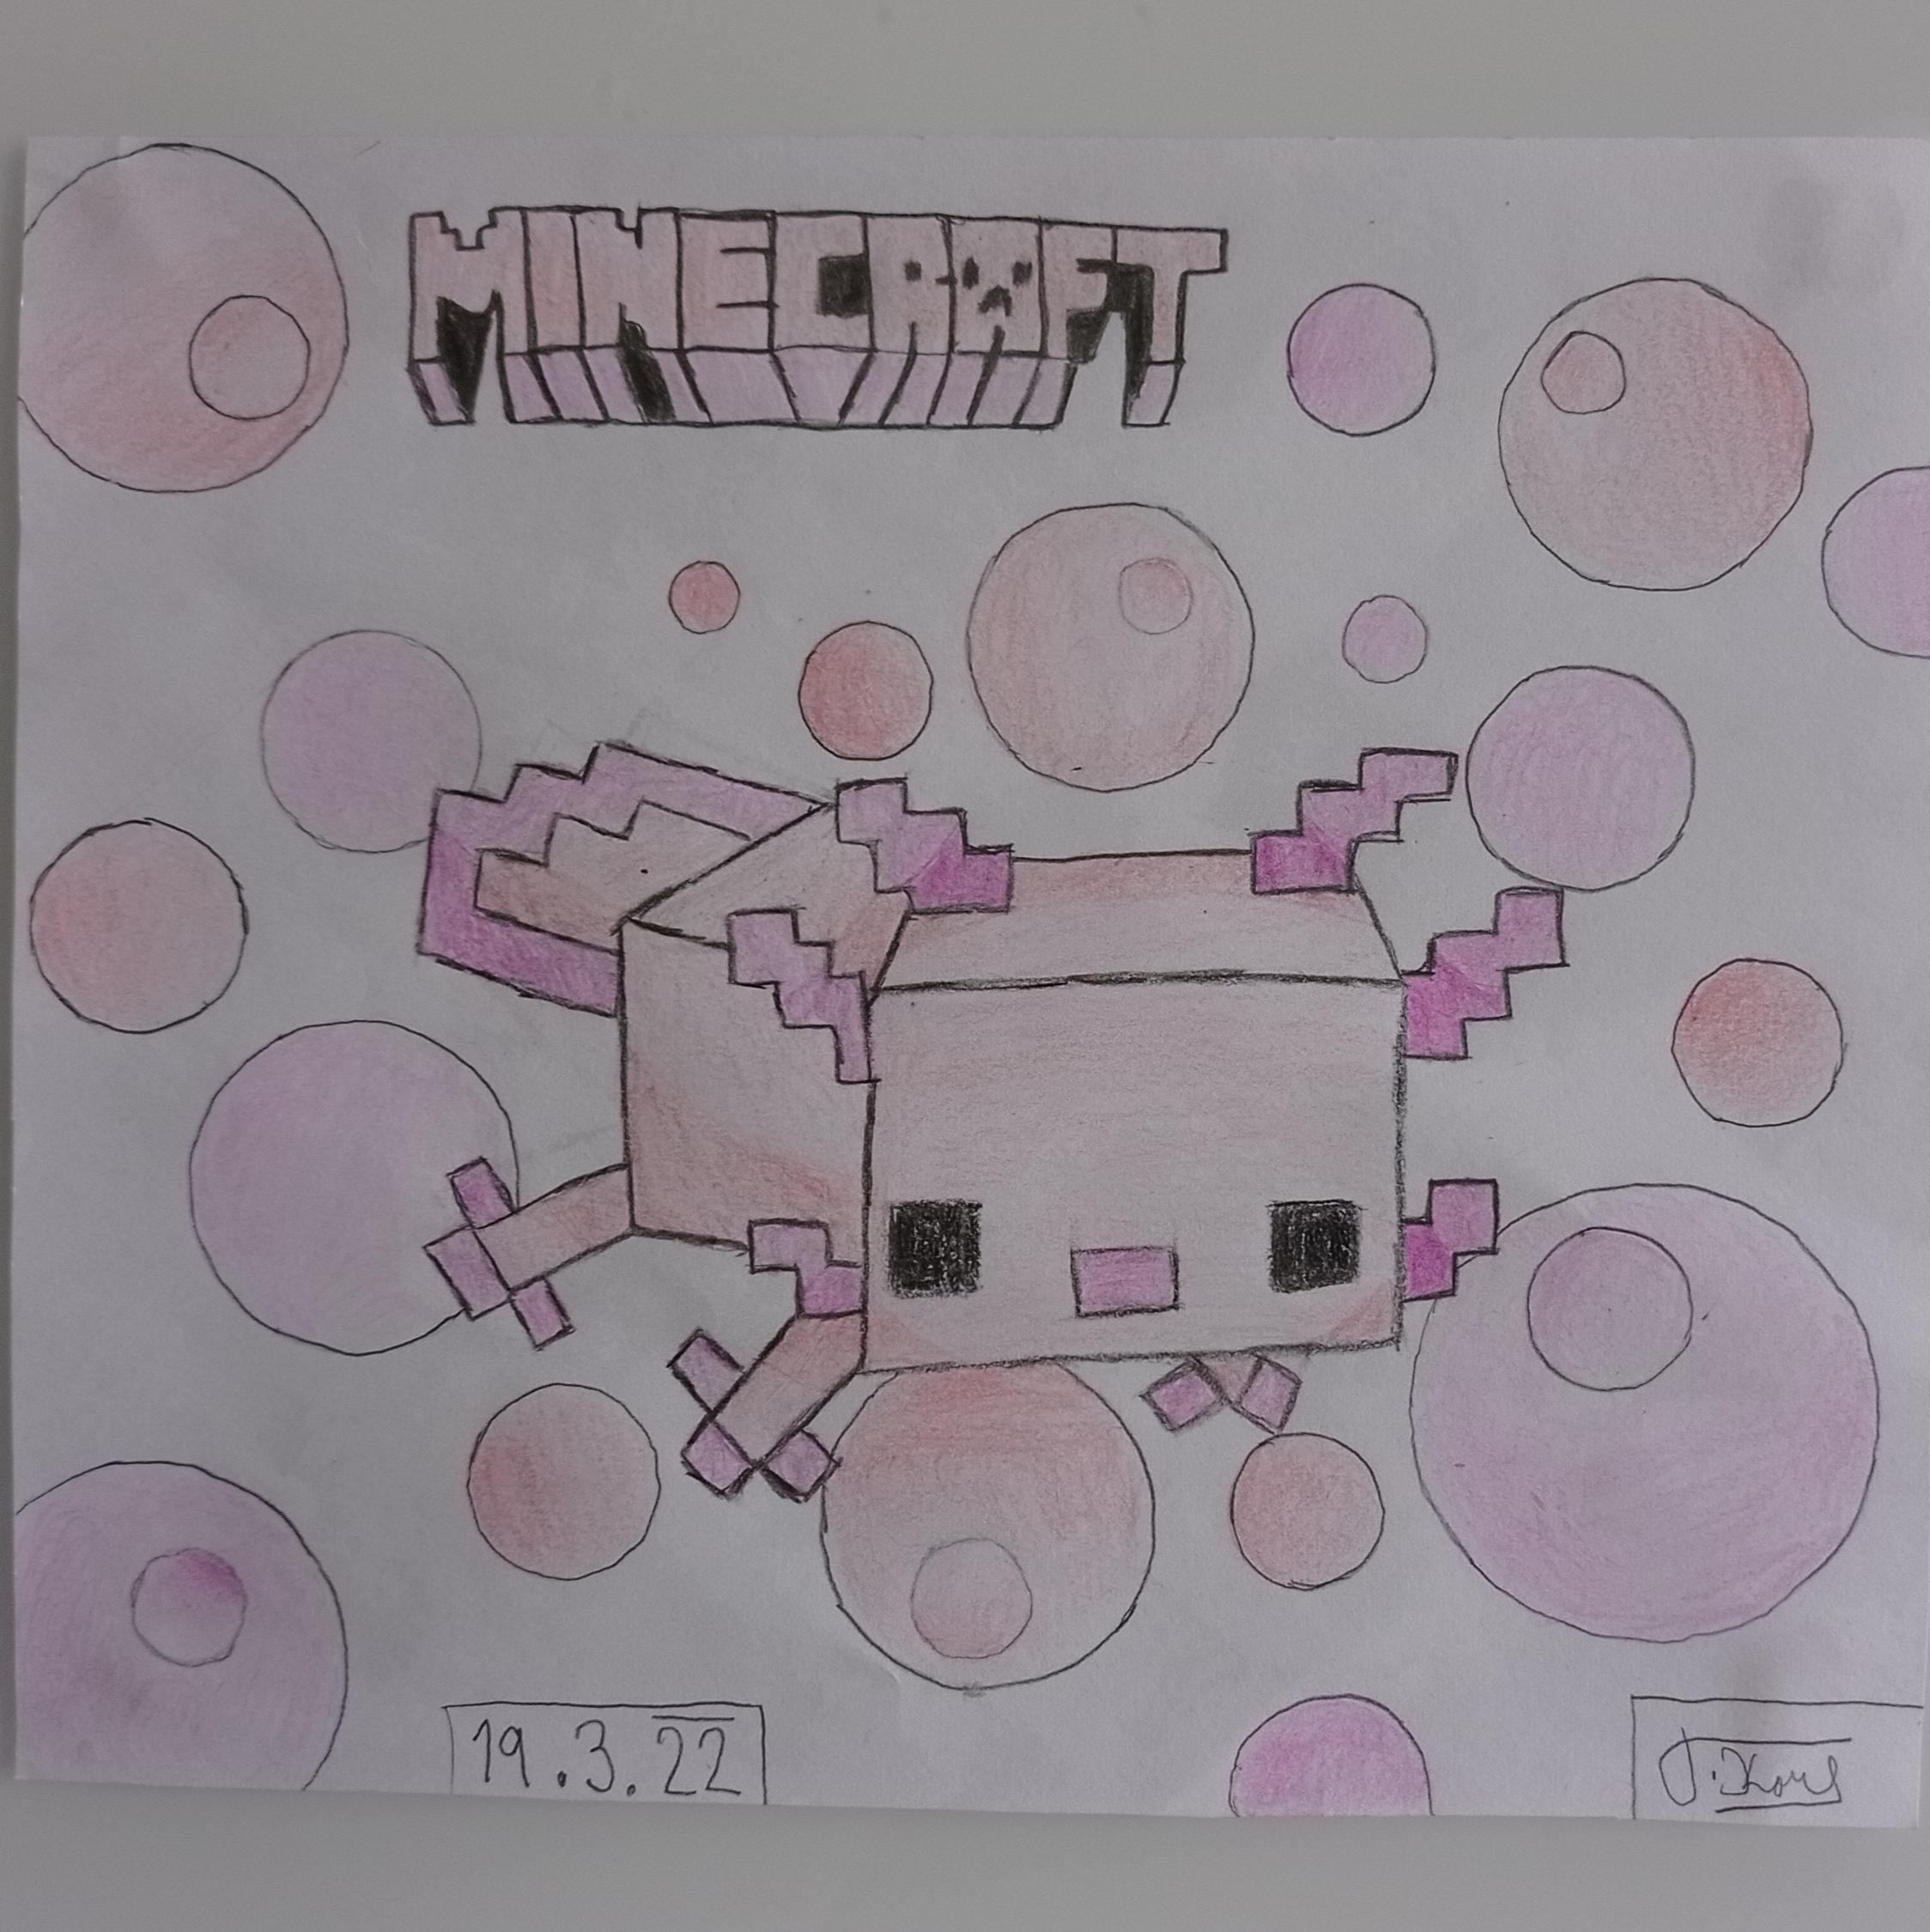 MINECRAFT
19.3.22